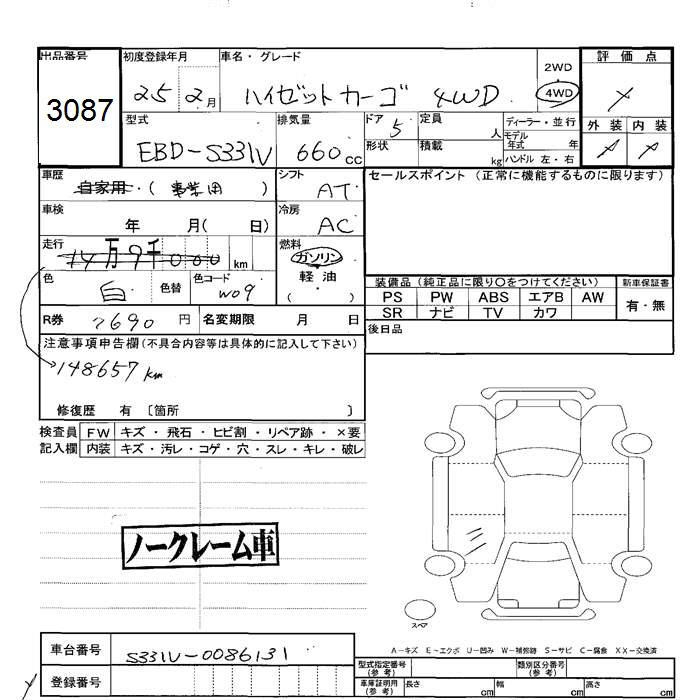 出品番号 初度登録年月 車名・グレード 2WD 評価点
3087 25 2月 ハイゼットカーゴ 4WD 4WD
型式 排気量 ドア 5 定員 人 ディーラー・並行 外装 内装
EBD-S331V 660cc 形状 積載 kg モデル年式 年
ハンドル 左・右
車歴 自家用・(事業用) シフト AT セールスポイント (正常に機能するものに限ります)
車検 年 月( 日) 冷房 AC
走行 14万9千000 km 燃料 ガソリン
軽・油
色 白 色替 色コード W09 ( )
装備品 (純正品に限り○をつけてください) 新車保証書
PS PW ABS エアB AW 有・無
SR ナビ TV カワ
R券 7690円 名変期限 月 日 後日品
注意事項申告欄(不具合内容等は具体的に記入して下さい)
148657km
修復歴 有 〔箇所 〕
検査員 FW キズ・飛石・ヒビ割・リペア跡・×要
記入欄 内装 キズ・汚レ・コゲ・穴・スレ・キレ・破レ
ノークレーム車
スペア
A-キズ E-エクボ U-凹み W-補修跡 S-サビ C-腐食 XX-交換済
車台番号 S331V-0086131 型式指定番号(参考) 類別区分番号(参考)
登録番号 車庫証明用(参考) 長さ cm 幅 cm 高さ cm